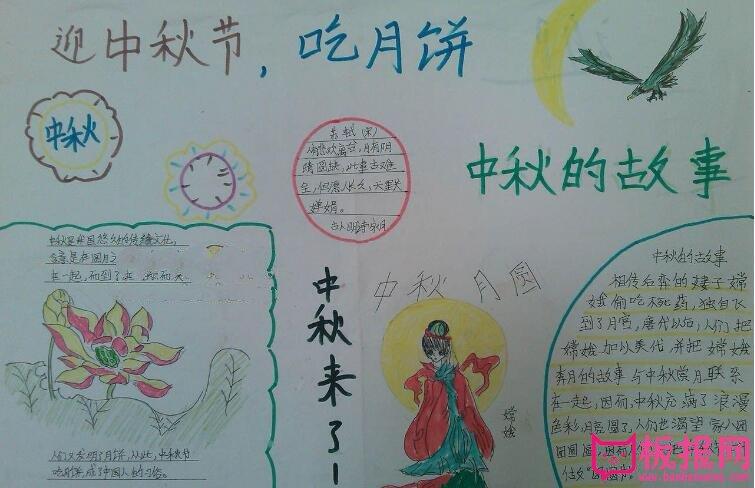 迎中秋节，吃月饼
中秋
中秋的故事
苏轼(宋)
悲欢离合，月有阴
晴圆缺，此事古难
全，但愿人长久，千里共
婵娟。
中秋来了!
中秋月圆
嫦娥
一起，
人们又发明了月饼，从此，中秋节
吃月饼，成了中国人的习俗。
中秋的故事
相传后羿的妻子嫦
娥偷吃不死药，独自飞
到了月宫，唐代以后，人们把
嫦娥加以美化，并把嫦娥
奔月的故事与中秋赏月联系
在一起，因而，中秋充满了浪漫
色彩，月亮圆了，人们也渴望家人团
板报网
www.banbaowang.com